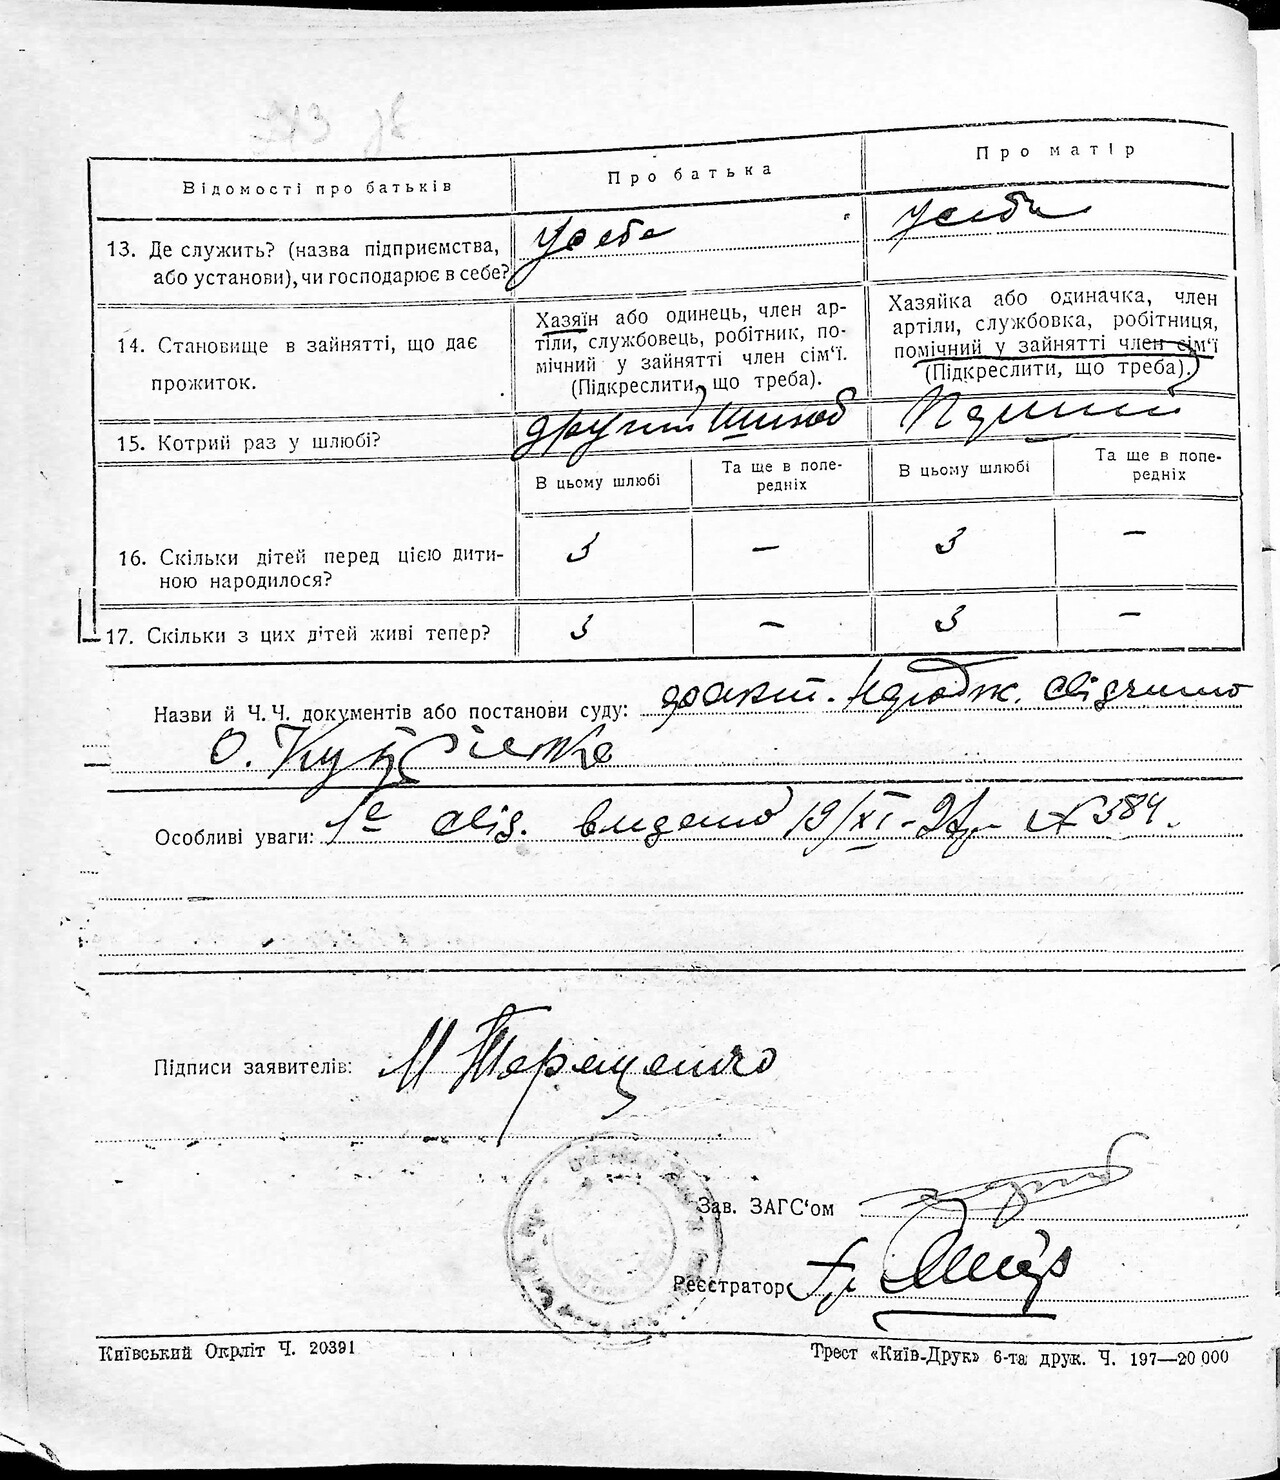 Відомості про батьків
Про батька
Про матір
13. Де служить? (назва підприємства,
або установи), чи господарює в себе?
У себе
У себе
14. Становище в зайнятті, що дає
прожиток.
Хазяїн або одинець, член ар-
тіли, службовець, робітник, по-
мічний у зайнятті член сім‘ї.
(Підкреслити, що треба).
Хазяйка або одиначка, член
артіли, службовка, робітниця,
помічний у зайнятті член сім‘ї
(Підкреслити, що треба).
15. Котрий раз у шлюбі?
другий шлюб
Перший
В цьому шлюбі
Та ще в попе-
редніх
В цьому шлюбі
Та ще в попе-
редніх
16. Скільки дітей перед цією дити-
ною народилося?
3
—
3
—
17. Скільки з цих дітей живі тепер?
3
—
3
—
Назви й Ч. Ч. документів або постанови суду: факт. народж. свідчить
О.
Особливі уваги: свід. видано 19/XI- № 384.
Підписи заявителів: М Терещенко
Зав. ЗАГС‘ом
Реєстратор
Київський Окрліт Ч. 20391
Трест «Київ-Друк» 6-та друк. Ч. 197—20 000